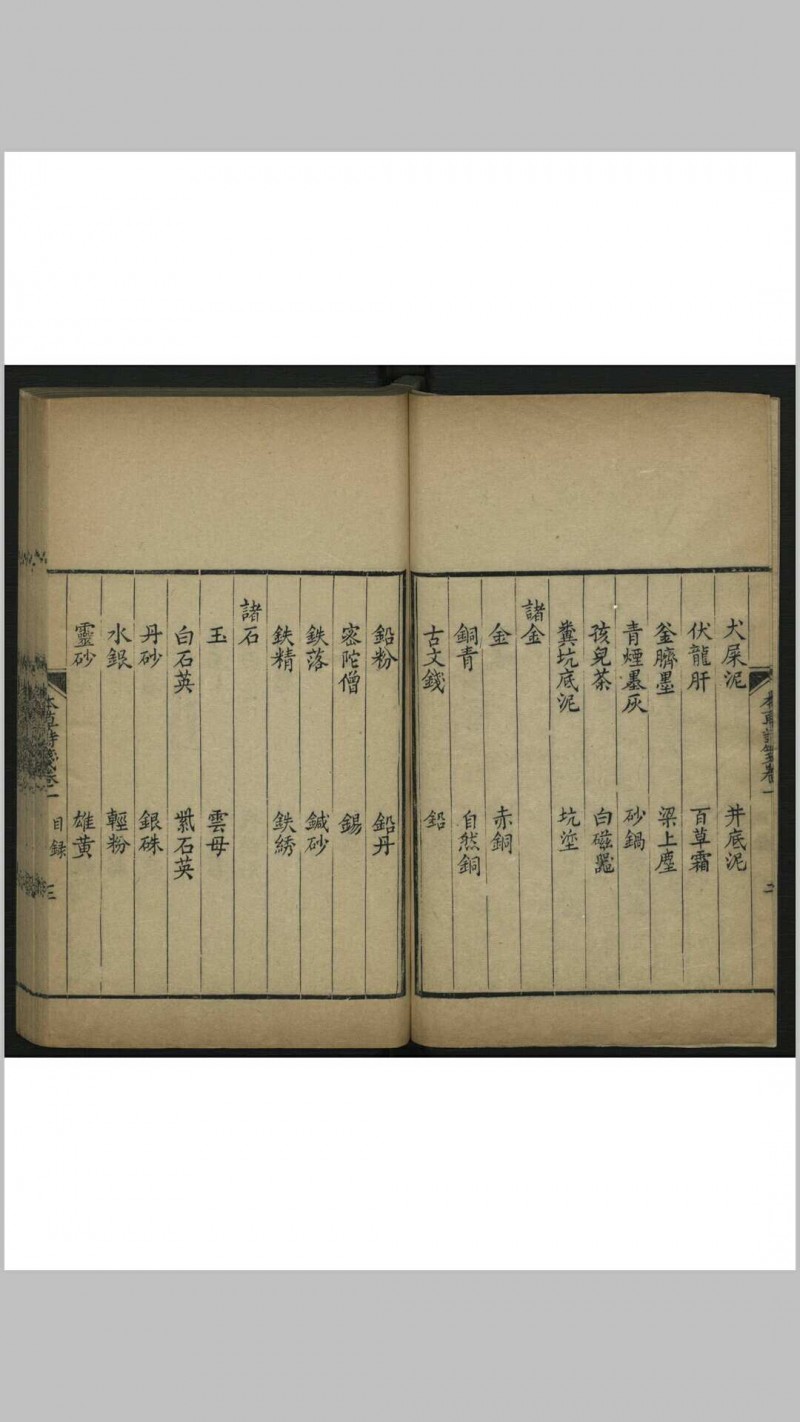 犬屎泥 井底泥
伏龍肝 百草霜
釜臍墨 梁上塵
青煙墨灰 砂鍋
孩兒茶 白磁噐
糞坑底泥 坑塗
諸金
金 赤銅
銅青 自然銅
古文錢 鉛
鉛粉 鉛丹
宻陀僧 錫
鉄落 鍼砂
鉄精 鉄綉
諸石
玉 雲母
白石英 紫石英
丹砂 銀硃
水銀 輕粉
靈砂 雄黄
本草詩箋卷一 目録 三